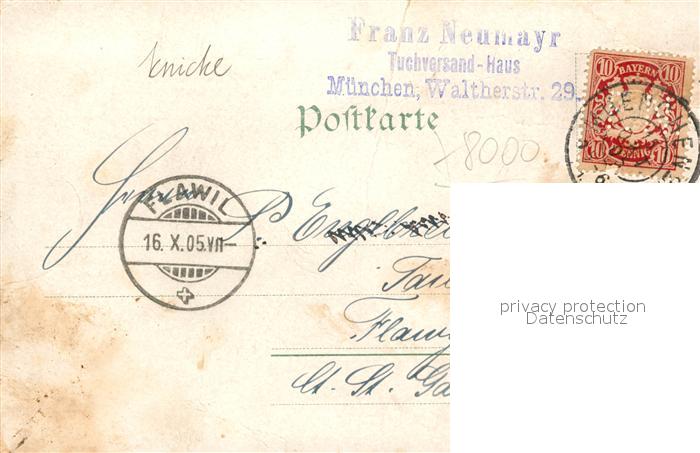 knicke
Franz Neumayr
Tuchversand-Haus
München, Waltherstr. 29.
Postkarte
8000
10 BAYERN 10
10 PFENNIG 10
MUENCHEN
FLAWIL
16. X. 05. VII—
Herrn P. Engelb
Flaw
Ct. St. Ga
privacy protection
Datenschutz